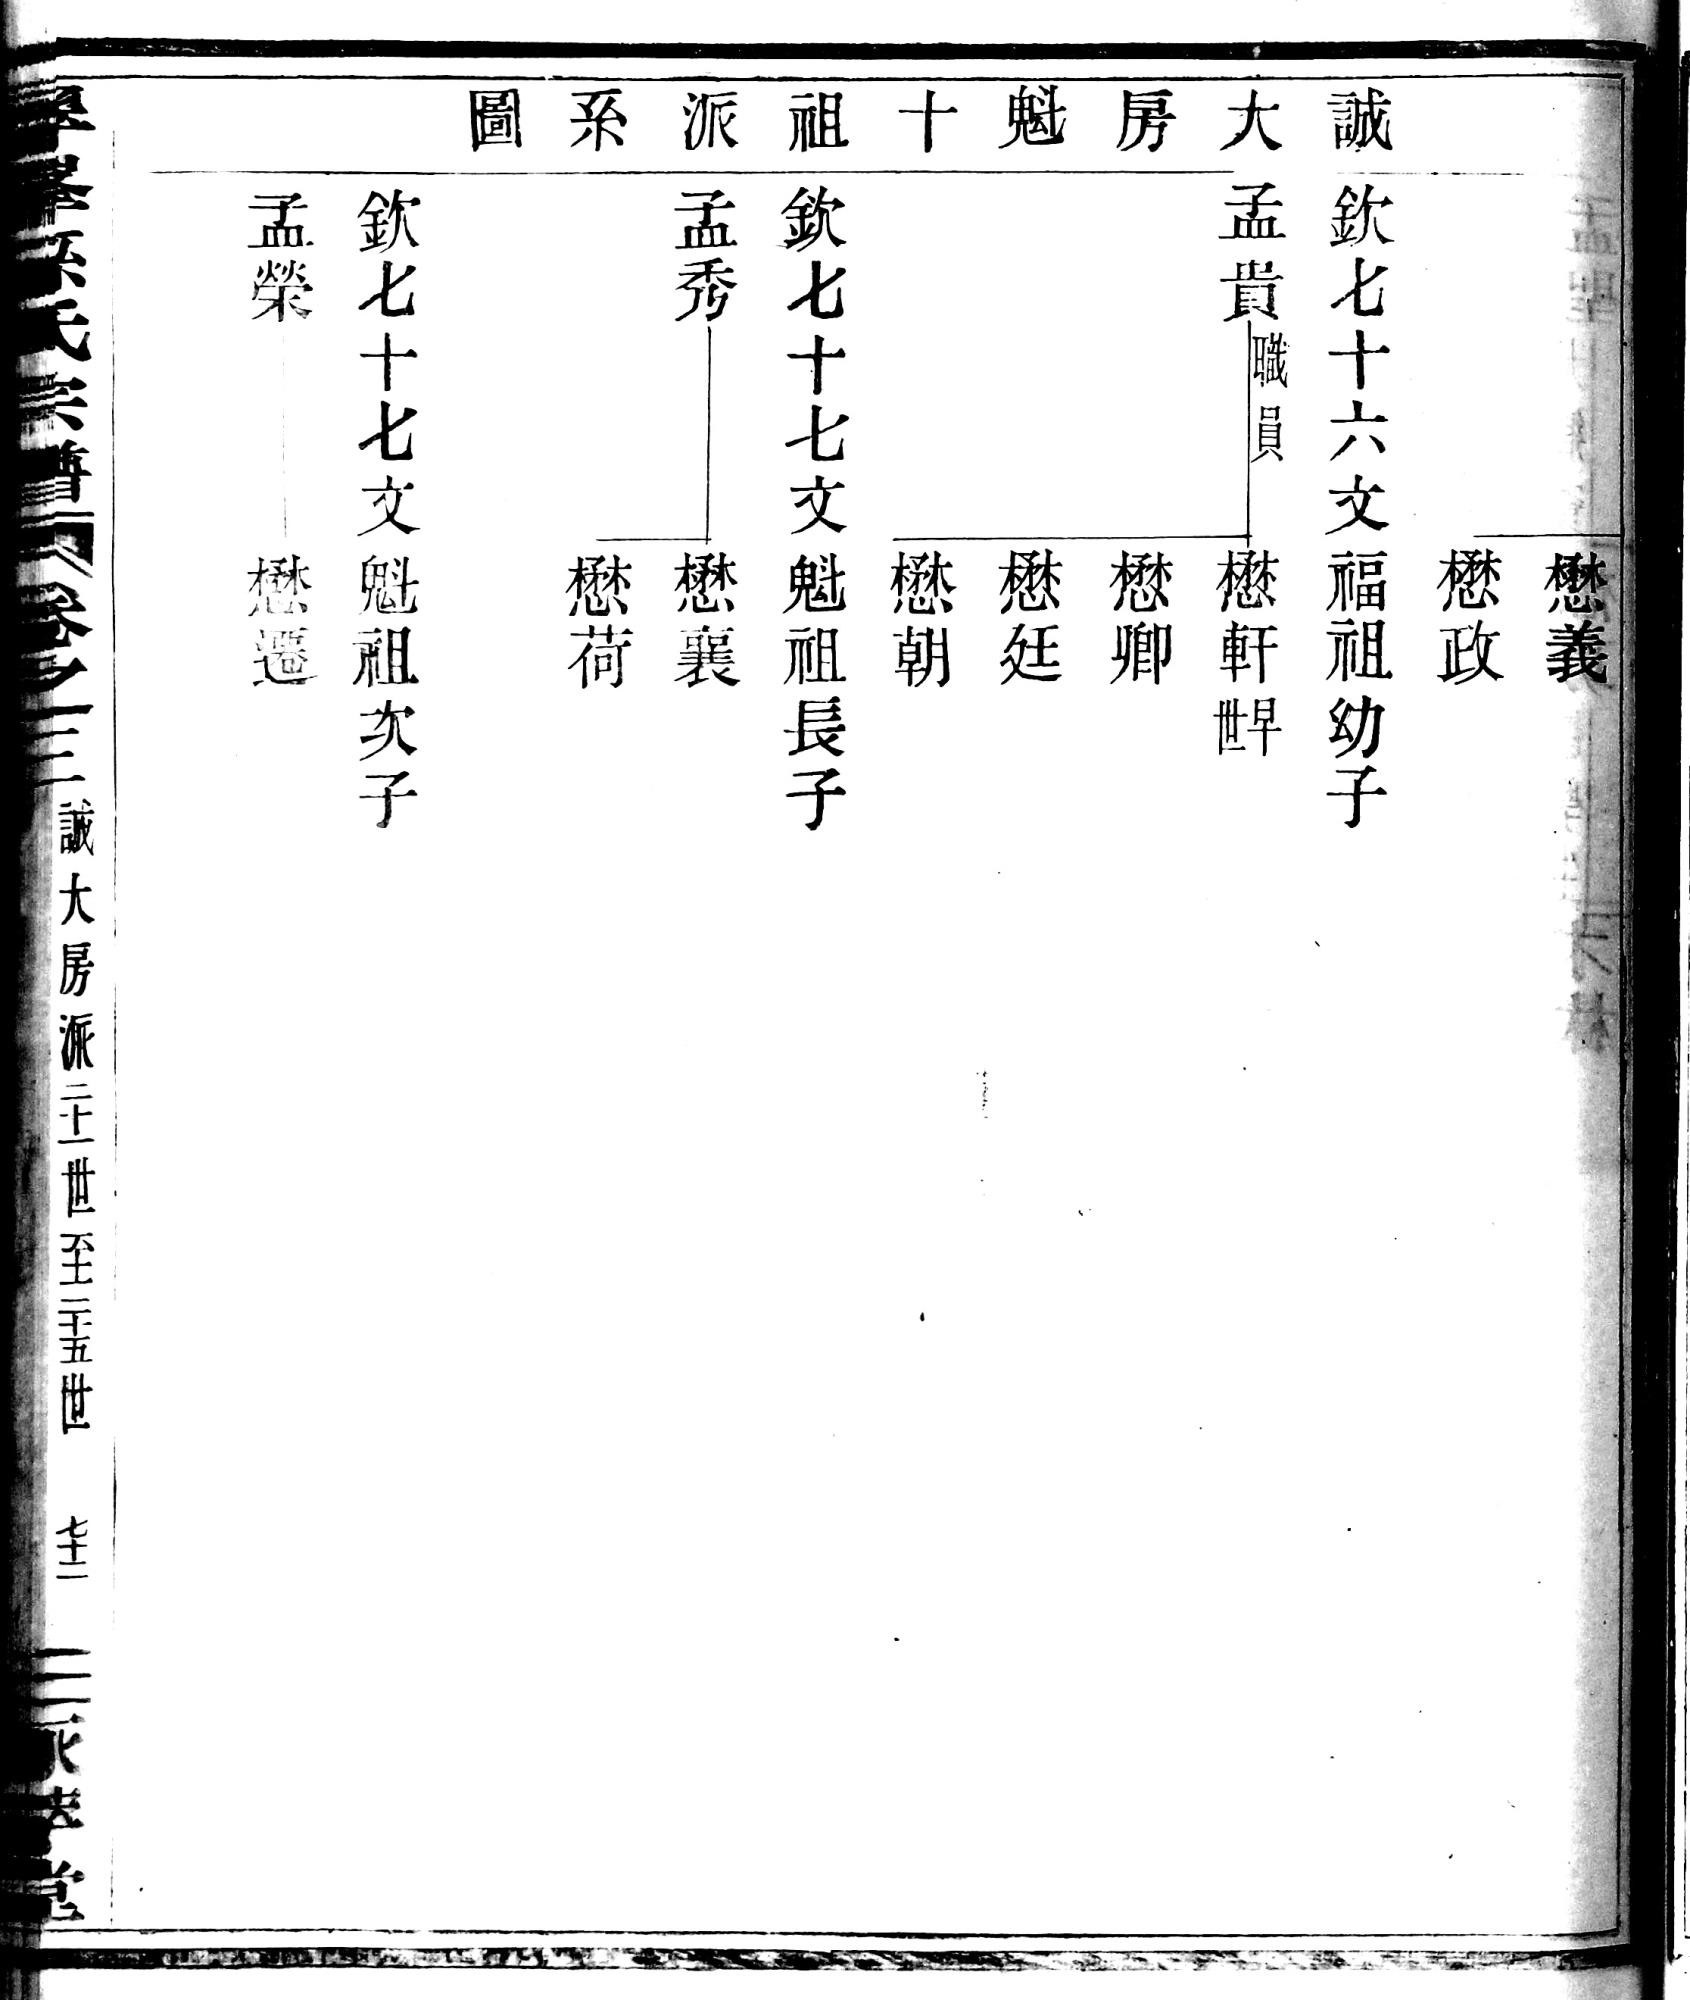 誠大房魁十祖派系圖
懋義
懋政
欽七十六文福祖幼子
孟貴職員
懋軒早世
懋卿
懋廷
懋朝
欽七十七文魁祖長子
孟秀
懋襄
懋荷
欽七十七文魁祖次子
孟榮
懋遷
孫氏宗譜
卷之三
誠大房派二十一世至二十五世
七十二
堂